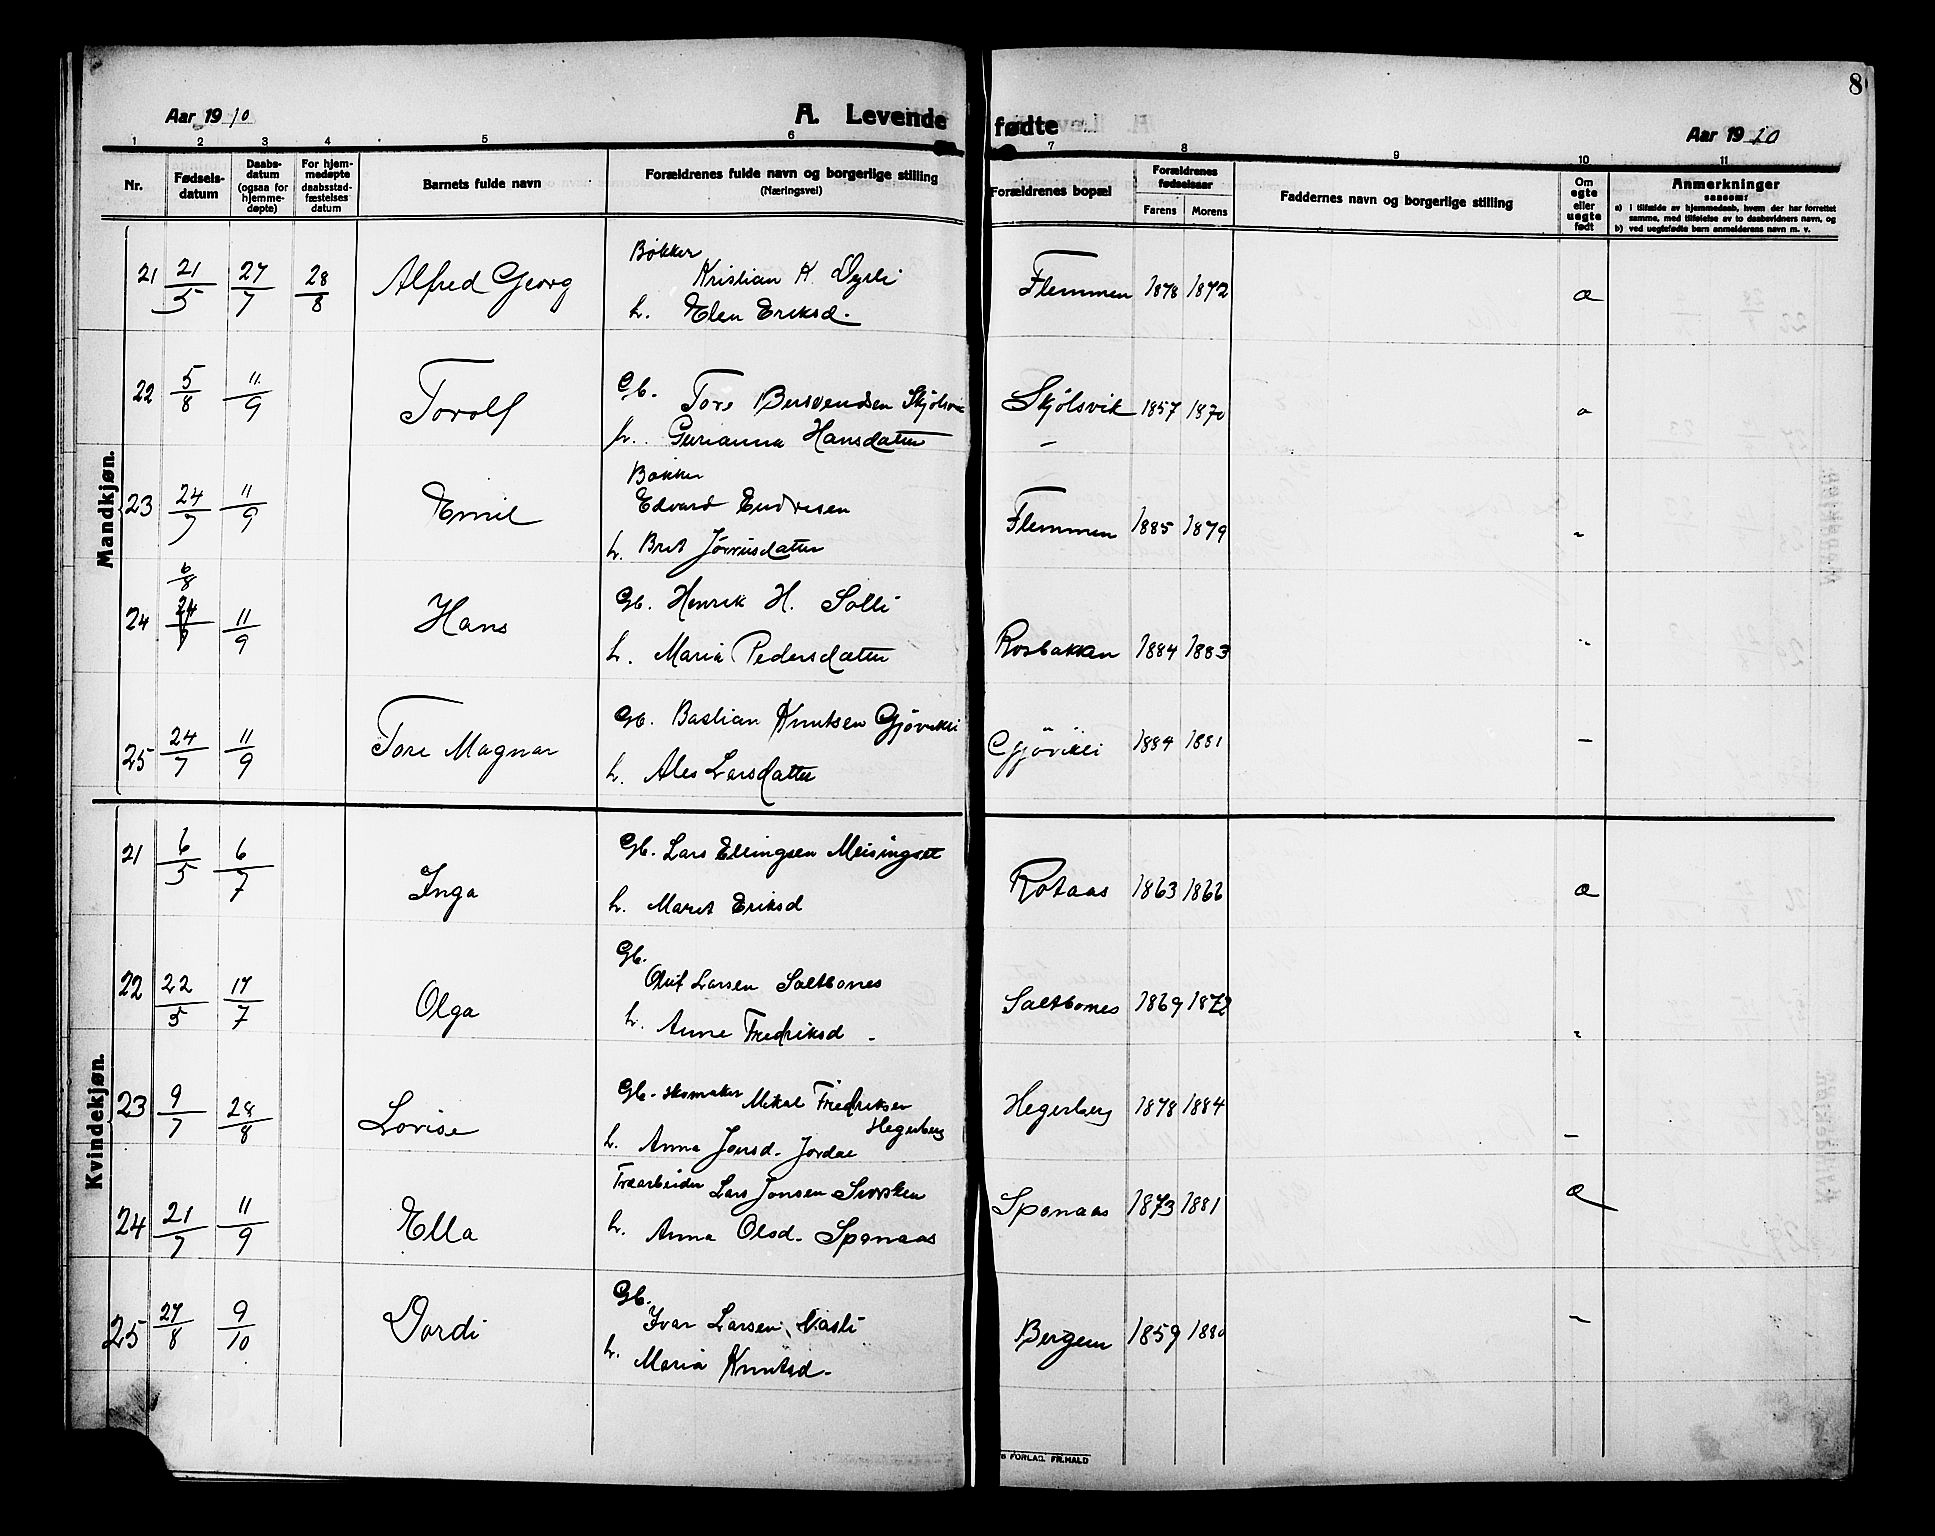 8
Aar 1910
A. Levende
fødte
Aar 1910
1 2 3 4 5 6 7 8 9 10 11
Nr.
Fødsels-
datum
Daabs-
datum
(ogsaa for
hjemme-
døpte)
For hjem-
medøpte
daabsstad-
fæstelses
datum
Barnets fulde navn
Forældrenes fulde navn og borgerlige stilling
(Næringsvei)
Forældrenes bopæl
Forældrenes
fødselsaar
Farens Morens
Faddernes navn og borgerlige stilling
Om
egte
eller
uegte
født
Anmerkninger
saasom:
a) i tilfælde av hjemmedaab, hvem der har forrettet
samme, med tilføielse av to daabsvidners navn, og
b) ved uegtefødte barn anmelderens navn m. v.
Mandkjøn.
Bøkker
21 21/5 27/7 28/8 Alfred Georg Kristian K. Flemmen 1878 1872 æ
h. Elen Eriksd.
22 5/8 11/9 Torolf Gb. Tore Bersvendsen Skjølsvi Skjølsvik 1857 1870
h. Gurianna Hansdatter
Bøkker
23 24/7 11/9 Emil Edvard Endresen Flemmen 1885 1879 "
h. Brit Jørnsdatter
6/8
24 24/7 11/9 Hans Gb. Henrik H. Solli Rosbakken 1884 1883 "
h. Maria Pedersdatter
25 24/7 11/9 Tore Magnar Gb. Bastian Knutsen Gjøvikli Gjøvikli 1884 1881 –
h. Ales Larsdatter
Kvindekjøn.
21 6/5 6/7 Inga Gb. Lars Ellingsen Meisingset Rotaas 1863 1866 æ
h. Maret Eriksd
Gb.
22 22/5 17/7 Olga Oluf Larsen Saltbones Saltbones 1869 1872 "
h. Anne Fredriksd –
23 9/7 28/8 Lovise Gb. skomaker Mikal Fredriksen Hegerberg 1878 1884 –
Hegerberg
h. Anna Jonsd. Jordal
24 21/7 11/9 Ella Træarbeider Lars Jonsen Spånaas 1873 1881 æ
h. Anna Olsd. Spånaas
Gb.
25 27/8 9/10 Dordi Ivar Larsen Vasli Bergem 1859 1880 –
h. Maria Knutsd.
FORLAG. FR. HALD